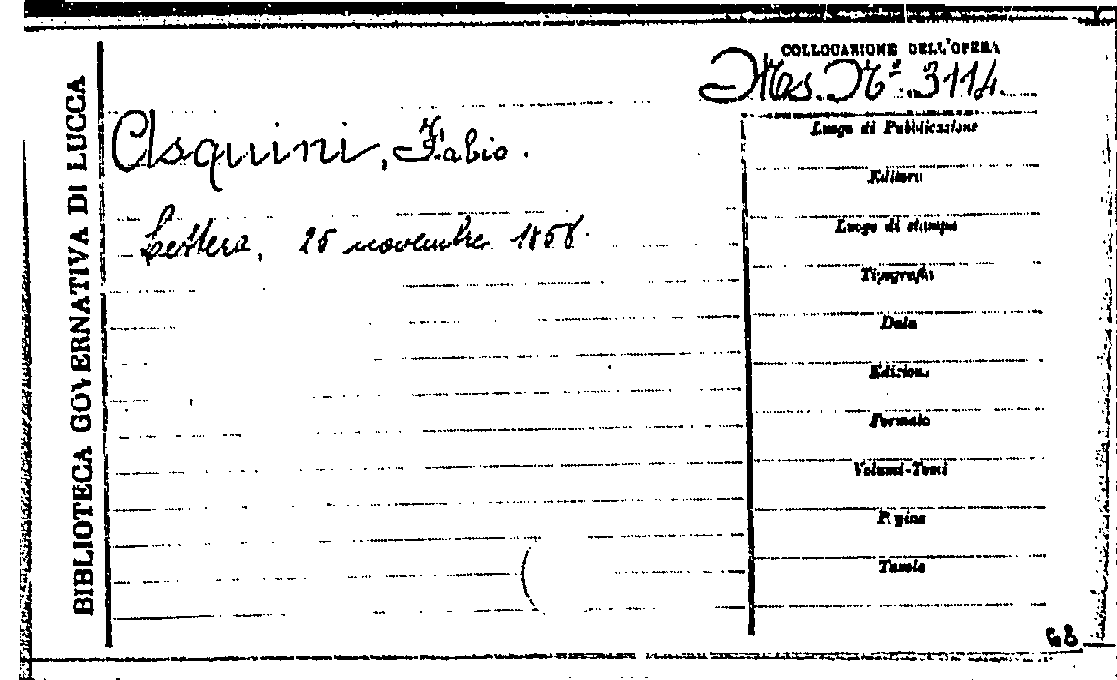 BIBLIOTECA GOVERNATIVA DI LUCCA
COLLOCAZIONE DELL'OPERA
Ms. Nº. 3114.
Asquini, Fabio.
Lettera, 25 novembre 1858.
Luogo di Pubblicazione
Editore
Luogo di stampa
Tipografia
Data
Edizione
Formato
Volumi-Tomi
Pagine
Tavole
68